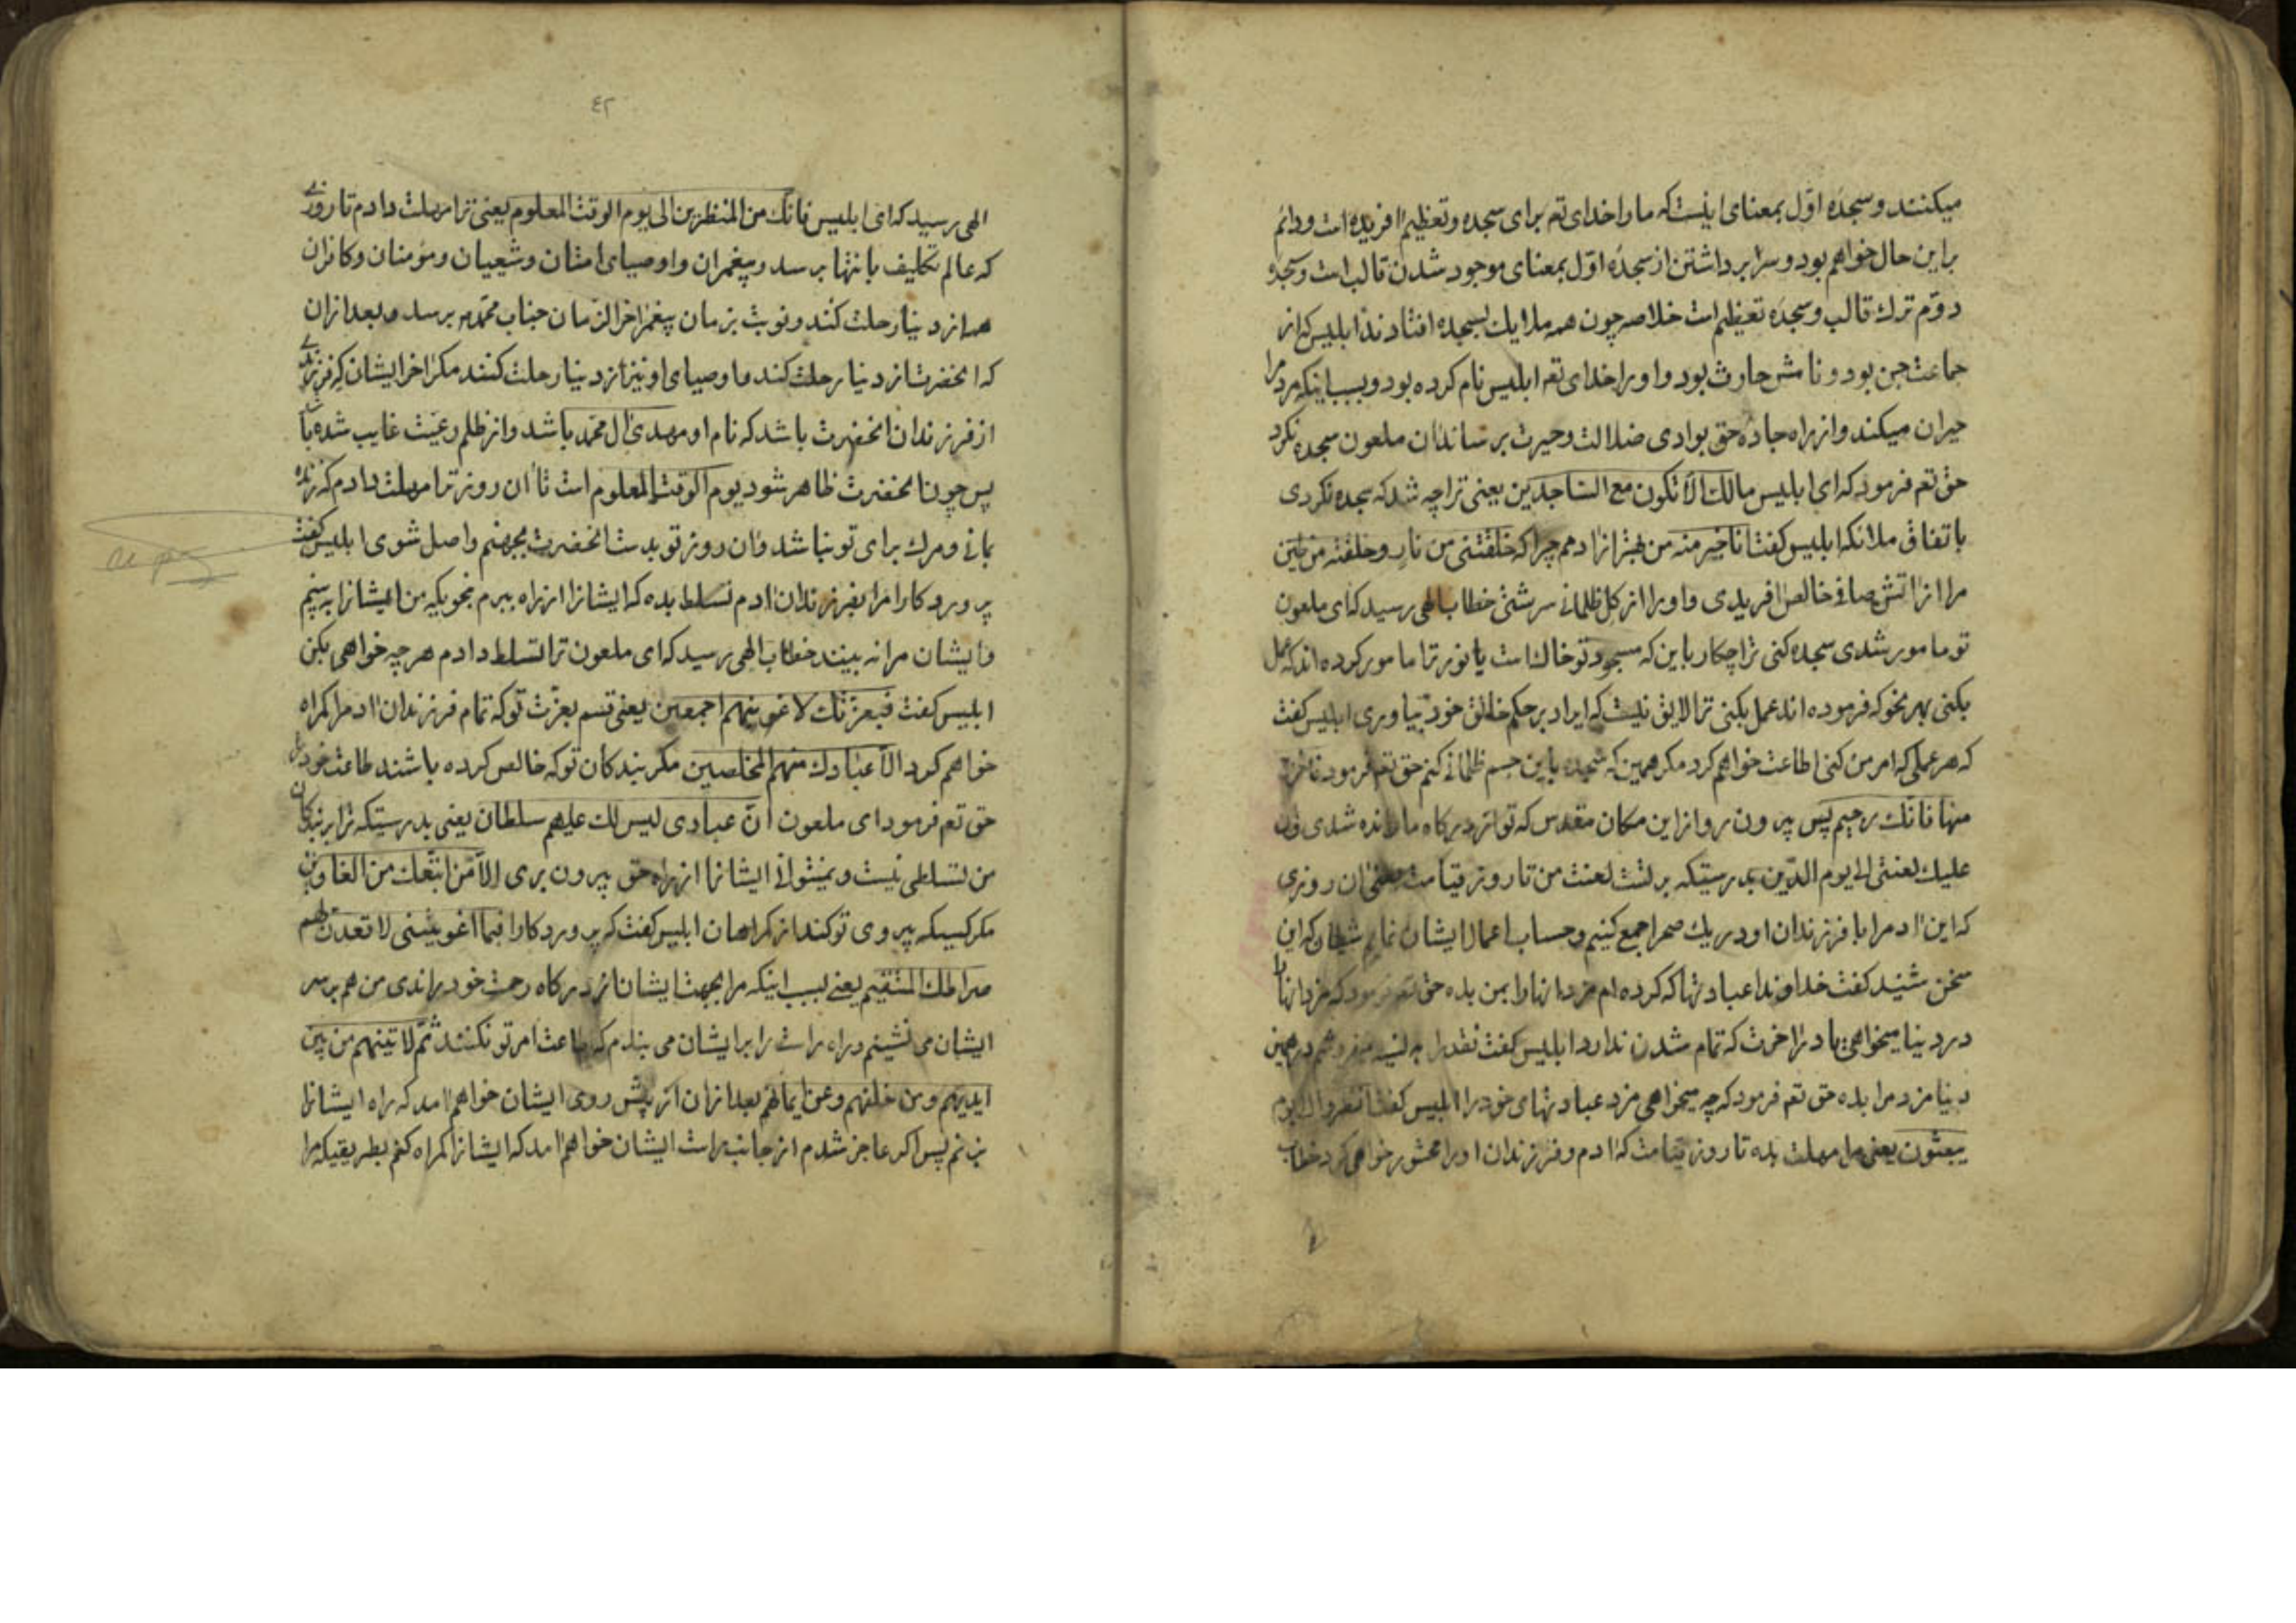 میکنند و سجده اوّل بمعنای اینست که ما را خدای تعه برای سجده و تعظیم آفریده است و دائم
براین حال خواهم بود و سرابرداشتن از سجدۀ اوّل بمعنای موجود شدن قالب است و سجدۀ
دوّم ترك قالب و سجده تعظیم است خلاصه چون همه ملایك بسجده افتادند ابلیس که از
جماعت جن بود و نامش حارث بود و او را خدای تعه ابلیس نام کرده بود و بسبب اینکه مردم را
حیران میکند و از راه جادۀ حق بوادی ضلالت و حیرت برساند آن ملعون سجده نکرد
حق تعه فرمود که ای ابلیس مالك الّا تكون مع الساجدین یعنی ترا چه شد که سجده نکردی
باتفاق ملائکه ابلیس کفت انا خیر منه من بهتر از آدمم چرا که خلقتنی من نار و خلقته من طین
مرا از آتش صافی خالص آفریدی و او را از کل ظلمانی سرشتی خطاب الهی رسید که ای ملعون
تو مامور شدی سجده کنی ترا چکار باین که مسجود تو خاك است یا نور ترا مامور کرده اند که عمل
بکنی بهر نحو که فرموده اند عمل بکنی ترا لایق نیست که ایراد بر حکم خالق خود بیاوری ابلیس کفت
که هر عملی که امر من کنی اطاعت خواهم کرد مکر همین که سجده باین جسم ظلمانی کنم حق تعه فرمود فاخرج
منها فانك رجیم پس بیرون رو از این مکان مقدس که تو از درکاه ما رانده شدی و ان
علیك لعنتی الی یوم الدّین بدرستیکه بر تست لعنت من تا روز قیامت یعنی آن روزی
که این آدم را با فرزندان او در یك صحرا جمع کنیم و حساب اعمال ایشان نمایم شیطان که این
سخن شنید کفت خداوندا عبادتها که کرده ام مزد آنها را بمن بده حق تعه فرمود که مزد آنها را
در دنیا میخواهی یا در آخرت که تمام شدن ندارد ابلیس کفت نقد را به نسیه نمیفروشم در همین
دنیا مزد مرا بده حق تعه فرمود که چه میخواهی مزد عبادتهای خود را ابلیس کفت انظرنی الی یوم
یبعثون یعنی مرا مهلت بده تا روز قیامت که آدم و فرزندان او را محشور خواهی کرد خطاب
٤٢
الهی رسید که ای ابلیس فانك من المنظرین الی یوم الوقت المعلوم یعنی ترا مهلت دادم تا روزی
که عالم تکلیف بانتها برسد و پیغمران و اوصیای امتان و شعیان و مؤمنان و کافران
همه از دنیا رحلت کنند و نوبت بزمان پیغمر آخر الزمان جناب محمّد ص برسد و بعد از آن
که آنحضرت از دنیا رحلت کند و اوصیای او نیز از دنیا رحلت کنند مکر آخر ایشان که فرزندی
از فرزندان آنحضرت باشد که نام او مهدی آل محمّد باشد و از ظلم رعیّت غایب شده باشد
پس چون آنحضرت ظاهر شود یوم الوقت المعلوم است تا آن روز ترا مهلت دادم که زنده
بمانی و مرك برای تو نباشد و آن روز تو بدست آنحضرت بجهنم واصل شوی ابلیس کفت
پروردکارا مرا بفرزندان آدم تسلط بده که ایشانرا از راه ببرم بنحویکه من ایشانرا به بینم
و ایشان مرا نه بینند خطاب الهی رسید که ای ملعون ترا تسلط دادم هر چه خواهی بکن
ابلیس کفت فبعزتك لاغوینهم اجمعین یعنی قسم بعزّت تو که تمام فرزندان آدم را کمراه
خواهم کرد الّا عبادك منهم المخلصین مکر بندکان تو که خالص کرده باشند طاعت خود را
حق تعه فرمود ای ملعون انّ عبادی لیس لك علیهم سلطان یعنی بدرستیکه ترا بر بندکان
من تسلطی نیست و نمیتوانی ایشانرا از راه حق بیرون بری الّا من اتبعك من الغاوین
مکر کسیکه پیروی تو کند از کمراهان ابلیس کفت که پروردکارا فبما اغویتنی لاقعدن لهم
صراطك المستقیم یعنی بسبب اینکه مرا بجهت ایشان از درکاه رحمت خود راندی من هم بر سر
ایشان می نشینم و راه راست را بر ایشان می بندم که طاعت امر تو نکنند ثمّ لآتینهم من بین
ایدیهم و من خلفهم و عن ایمانهم بعد از آن از پیش روی ایشان خواهم آمد که راه ایشانرا
بزنم پس اکر عاجز شدم از جانب راست ایشان خواهم آمد که ایشانرا کمراه کنم بطریقیکه مرا